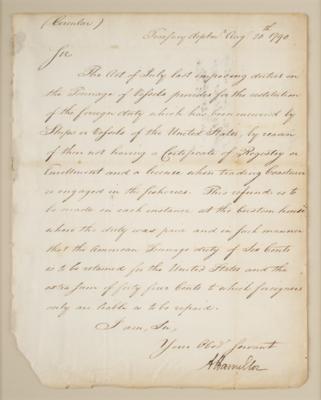 (Circular)
Treasury Departmt Augt 20th 1790
Sir
The Act of July last imposing duties on
the Tonnage of Vessels provides for the restitution
of the foreign duty which has been incurred by
Ships or Vessels of the United States, by reason
of their not having a Certificate of Registry or
Enrollment and a license when trading Coastwise
or engaged in the fisheries. This refund is to
be made in each instance at the Custom house
where the duty was paid and in such manner
that the American Tonnage duty of Six Cents
is to be retained for the United States and the
extra sum of forty four Cents to which foreigners
only are liable is to be repaid.
I am, Sir,
Your Obedt Servant
A Hamilton